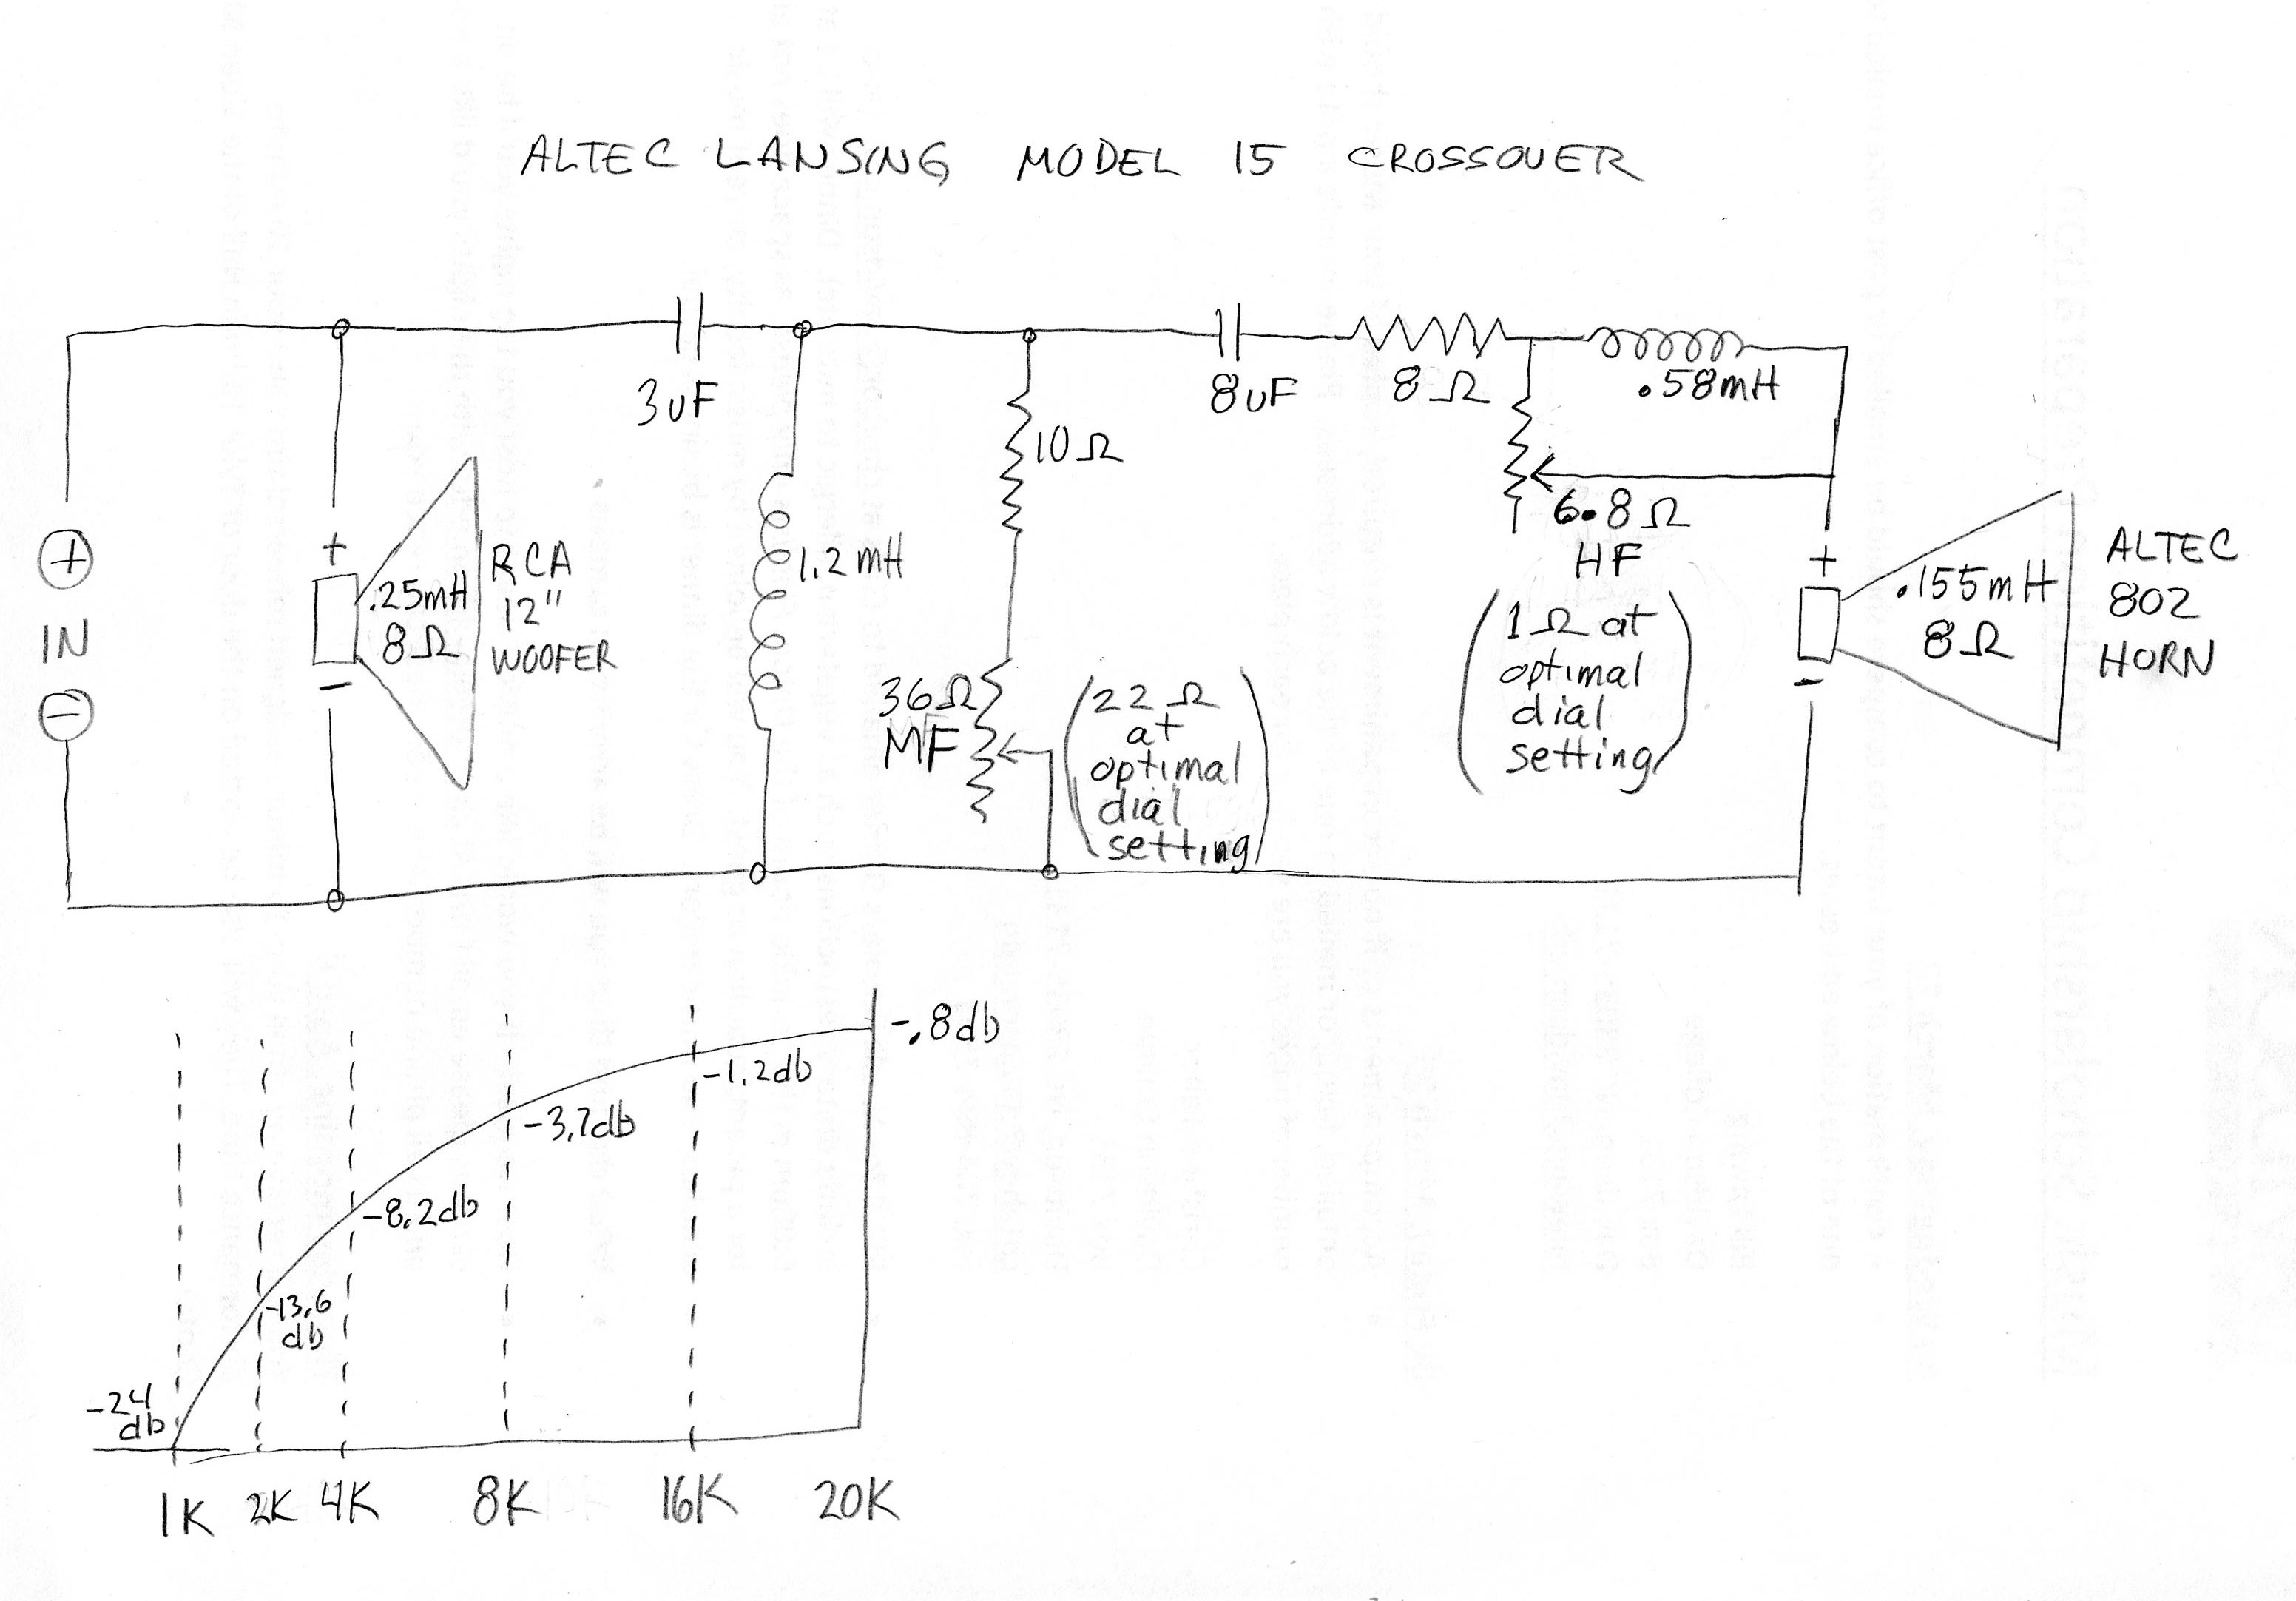 ALTEC LANSING MODEL 15 CROSSOVER
3uF
8uF
8Ω
.58mH
10Ω
1.2mH
+
IN
-
+
.25mH
8Ω
-
RCA
12"
WOOFER
36Ω
MF
(22Ω
at
optimal
dial
setting)
6.8Ω
HF
(1Ω at
optimal
dial
setting)
+
.155mH
8Ω
-
ALTEC
802
HORN
-.8db
-1.2db
-3.7db
-8.2db
-13.6
db
-24
db
1K 2K 4K 8K 16K 20K